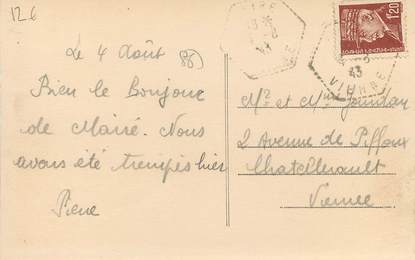 126
1.20
43
VIENNE
Le 4 Août (86)
Bien le Bonjour
de Mairé. Nous
avons été trempés hier
Pierre
Mr et Mme Jourdan
2 Avenue de Piffoux
Chatellerault
Vienne